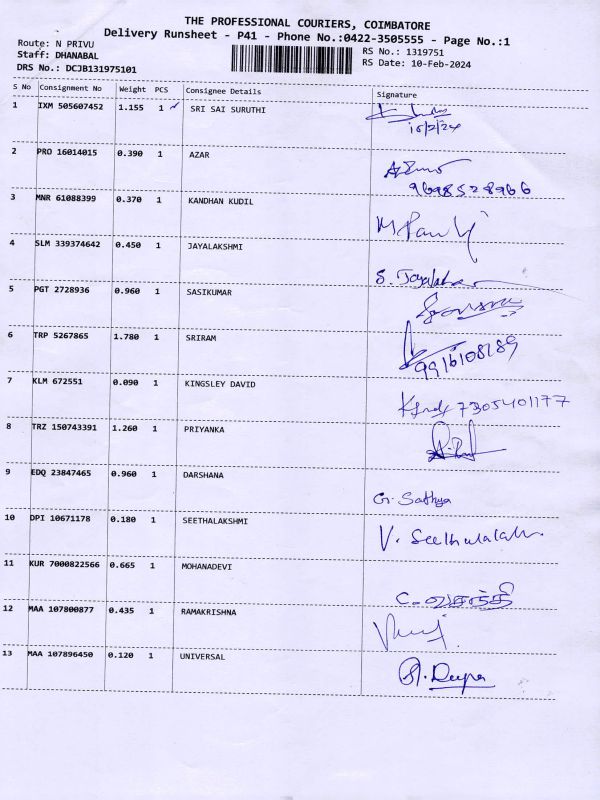 THE PROFESSIONAL COURIERS, COIMBATORE
Delivery Runsheet - P41 - Phone No.:0422-3505555 - Page No.:1
Route: N PRIVU
Staff: DHANABAL
DRS No.: DCJB131975101
RS No.: 1319751
RS Date: 10-Feb-2024
S No Consignment No Weight PCS Consignee Details Signature
1 IXM 505607452 1.155 1 SRI SAI SURUTHI
2 PRO 16014015 0.390 1 AZAR
9698528966
3 MNR 61088399 0.370 1 KANDHAN KUDIL
4 SLM 339374642 0.450 1 JAYALAKSHMI
5 PGT 2728936 0.960 1 SASIKUMAR
6 TRP 5267865 1.780 1 SRIRAM
7 KLM 672551 0.090 1 KINGSLEY DAVID
7305401177
8 TRZ 150743391 1.260 1 PRIYANKA
9 EDQ 23847465 0.960 1 DARSHANA
G. Sathya
10 DPI 10671178 0.180 1 SEETHALAKSHMI
11 KUR 7000822566 0.665 1 MOHANADEVI
C. வசந்தி
12 MAA 107800877 0.435 1 RAMAKRISHNA
13 MAA 107896450 0.120 1 UNIVERSAL